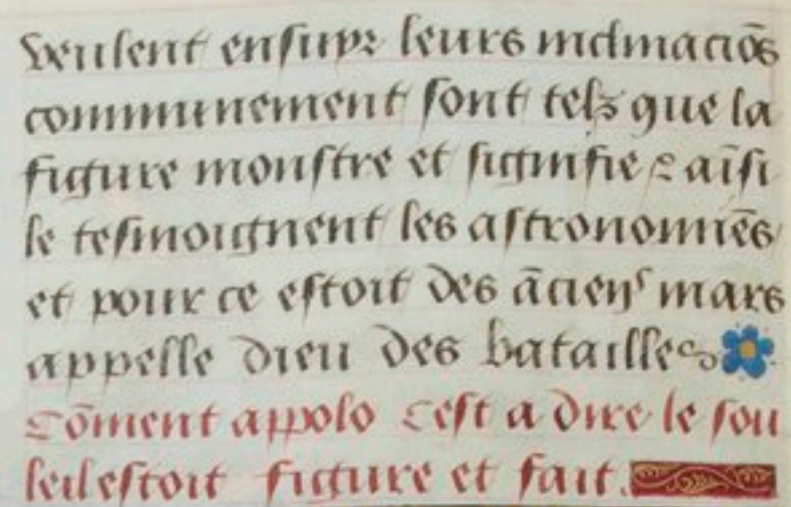 veulent ensuyr leurs inclinaciõs
communement sont telz que la
figure monstre et signifie Et aĩsi
le tesmoignent les astronomiẽs
et pour ce estoit des ãciens mars
appelle dieu des batailles
Cõment appolo Cest a dire le sou
leil estoit figure et fait.